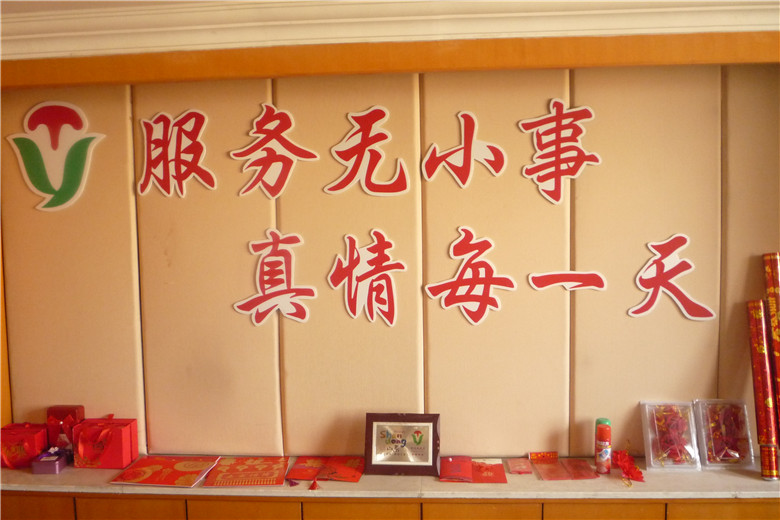 服务无小事
真情每一天